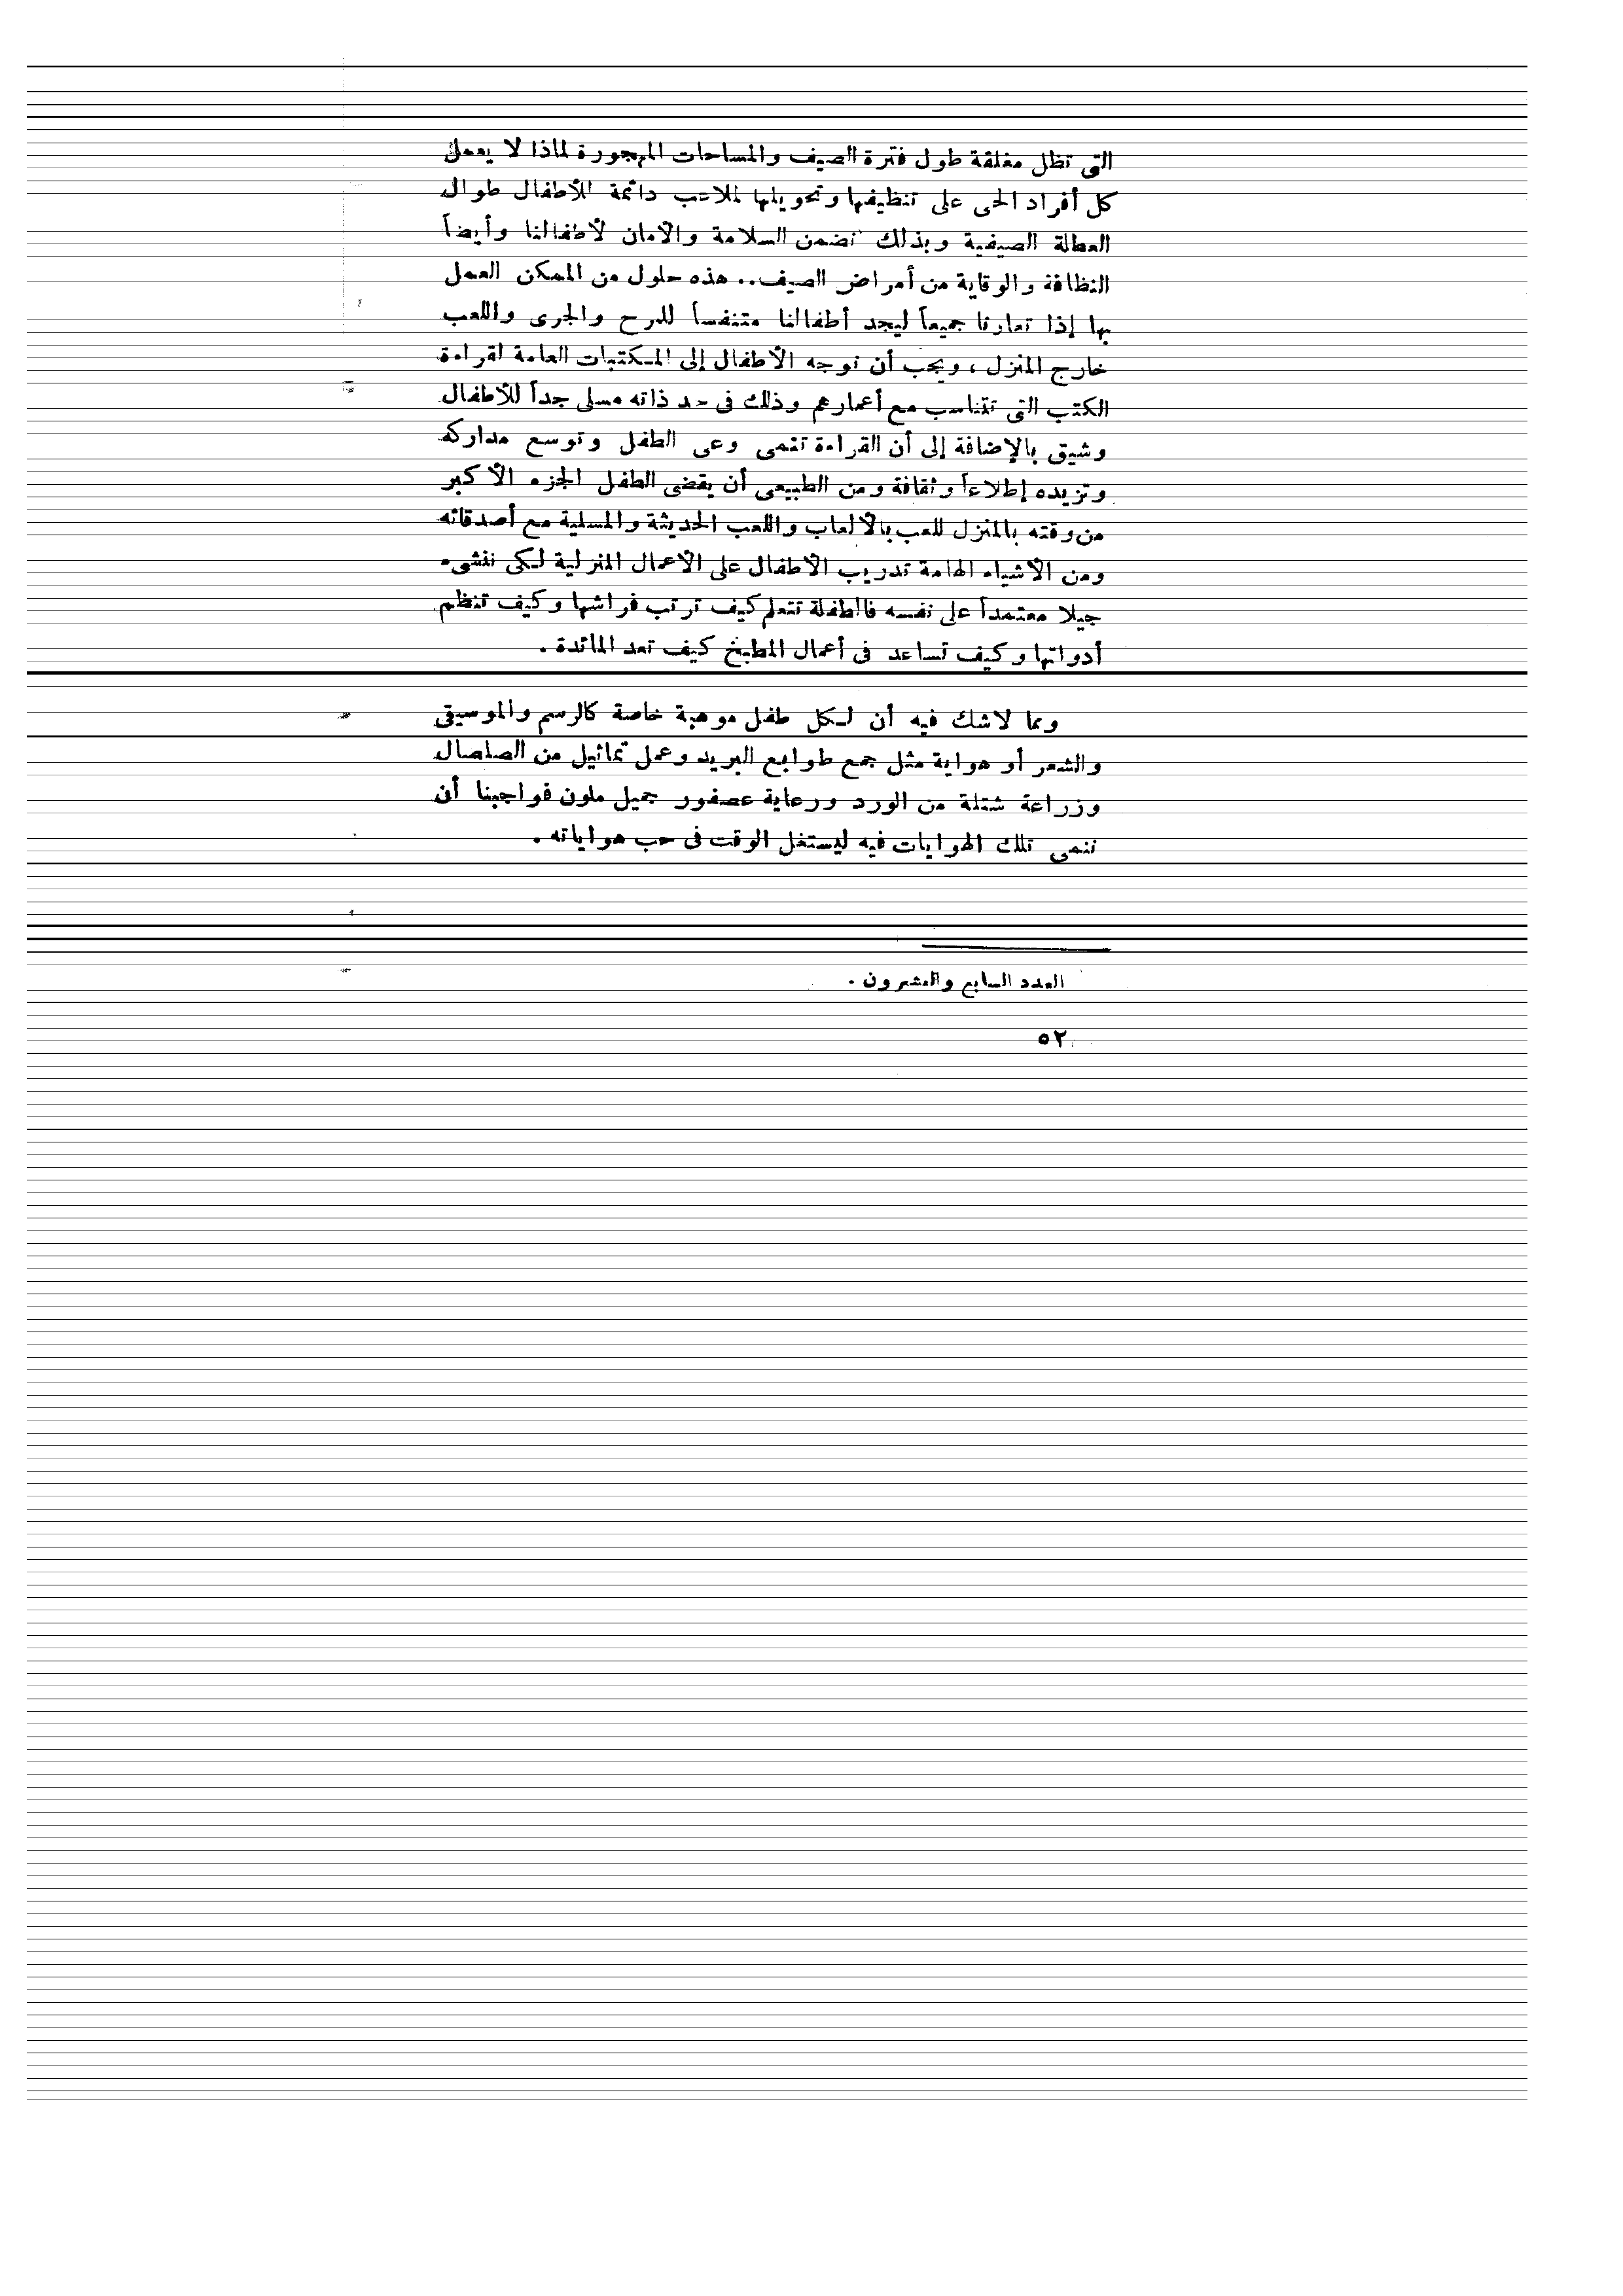 التى تظل مغلقة طول فترة الصيف والمساحات المهجورة لماذا لا يعمل
كل أفراد الحى على تنظيفها وتحويلها لملاعب دائمة للأطفال طوال
العطلة الصيفية وبذلك نضمن السلامة والامان لأطفالنا وأيضاً
النظافة والوقاية من أمراض الصيف.. هذه حلول من الممكن العمل
بها إذا تعاونا جميعاً ليجد أطفالنا متنفساً للمرح والجرى واللعب
خارج المنزل ، ويجب أن نوجه الأطفال إلى المكتبات العامة لقراءة
الكتب التى تتناسب مع أعمارهم وذلك فى حد ذاته مسلى جداً للأطفال
وشيق بالإضافة إلى أن القراءة تنمى وعى الطفل وتوسع مداركه
وتزيده إطلاعاً وثقافة ومن الطبيعى أن يقضى الطفل الجزء الأكبر
من وقته بالمنزل للعب بالألعاب واللعب الحديثة والمسلية مع أصدقائه
ومن الاشياء الهامة تدريب الاطفال على الاعمال المنزلية لكى ننشىء
جيلا معتمداً على نفسه فالطفلة تتعلم كيف ترتب فراشها وكيف تنظم
أدواتها وكيف تساعد فى أعمال المطبخ كيف تعد المائدة .
ومما لاشك فيه أن لكل طفل موهبة خاصة كالرسم والموسيقى
والشعر أو هواية مثل جمع طوابع البريد وعمل تماثيل من الصلصال
وزراعة شتلة من الورد ورعاية عصفور جميل ملون فواجبنا أن
ننمى تلك الهوايات فيه ليستغل الوقت فى حب هواياته .
العدد السابع والعشرون .
٥٢